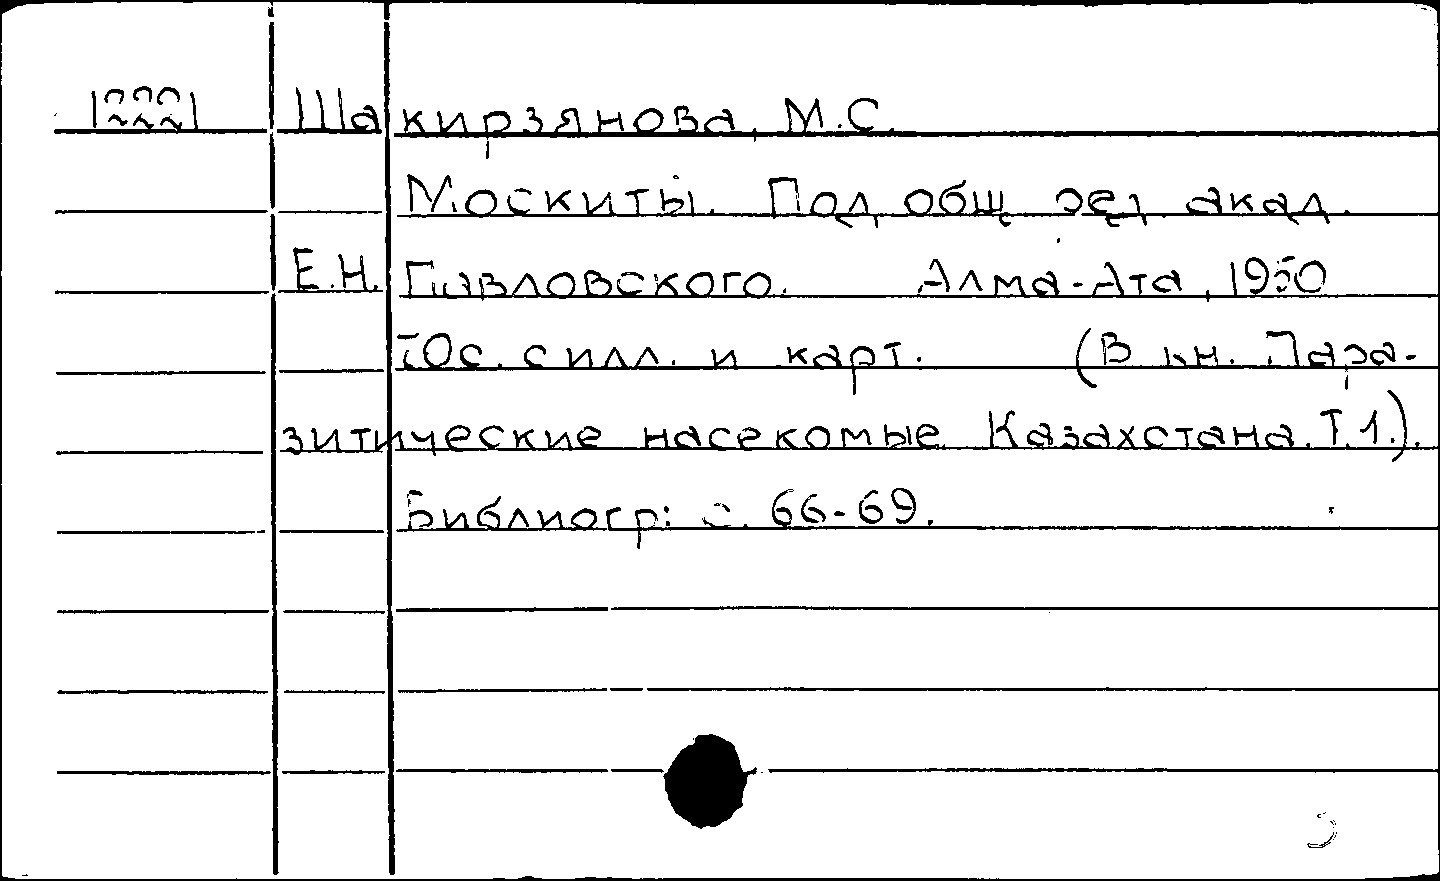 12221 Шакирзянова, М.С.
Москиты. Под общ ред акад.
Е.Н. Павловского. Алма-Ата, 1950
70с. с илл. и карт. (В кн. Пара-
зитические насекомые Казахстана. Т.1.).
Библиогр: с. 66-69.